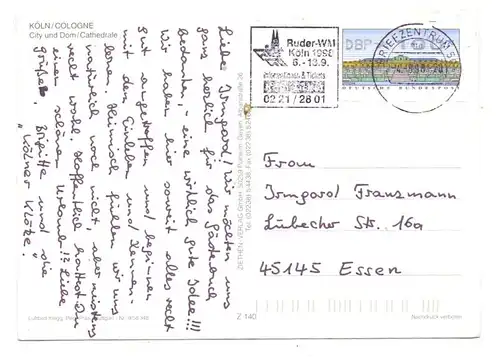 KÖLN / COLOGNE
City und Dom / Cathedrale
Liebe Irmgard! Wir möchten uns
ganz herzlich für das Gästebuch
bedanken, - eine wirklich gute Idee!!!
Wir haben hier soweit alles recht
gut angetroffen und beginnen
mit dem Einleben und Kennen-
lernen. Heimisch fühlen wir uns
natürlich noch nicht, aber meistens
recht wohl. Hoffentlich hattest Du
einen schönen Urlaub!? Liebe
Grüße, Brigitte und die
"Kölner Klötze."
ZIETHEN-VERLAG GmbH 50259 Pulheim
Z 140
Nachdruck verboten
Ruder-WM
Köln 1998
6.-13.9.
Informationen & Tickets
02 21 / 28 01
BRIEFZENTRUM 5
DBP
DEUTSCHE BUNDESPOST
Frau
Irmgard Franzmann
Lübecker Str. 16a
45145 Essen